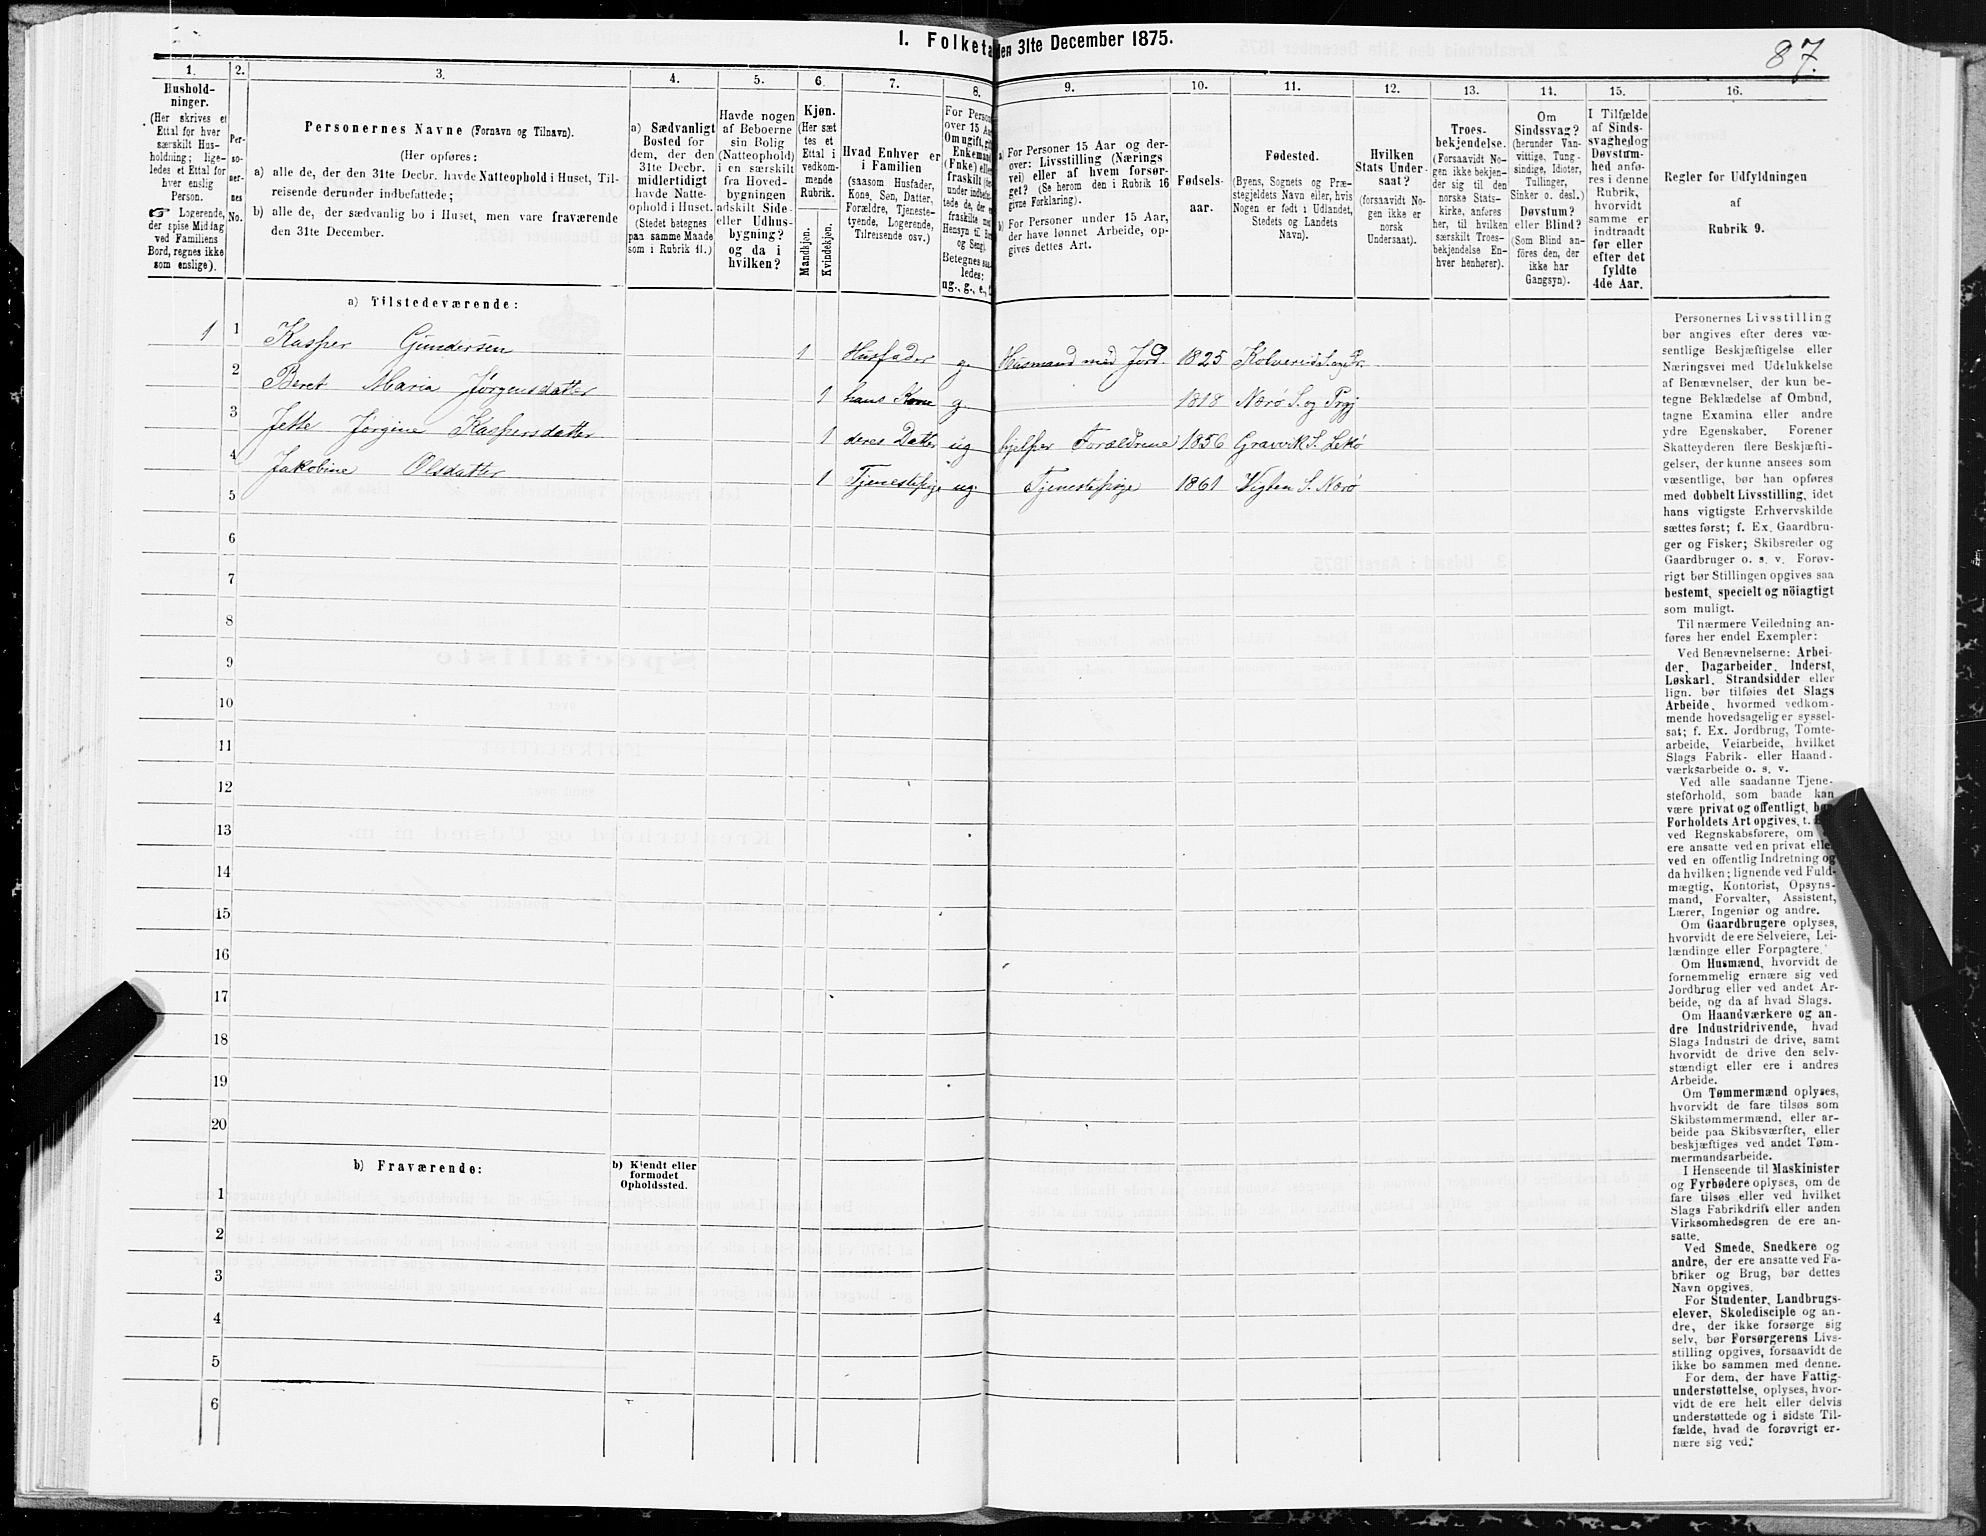 1. Folketa den 31te December 1875.
87.
1. 2. 3. 4. 5. 6. 7. 8. 9. 10. 11. 12. 13. 14. 15. 16.
Hushold-
ninger.
(Her skrives et
Ettal for hver
særskilt Hus-
holdning; lige-
ledes et Ettal for
hver enslig
Person.
☞ Logerende,
der spise Middag
ved Familiens
Bord, regnes ikke
som enslige).
Per-
so-
ner-
nes
No.
Personernes Navne (Fornavn og Tilnavn).
(Her opføres:
a) alle de, der den 31te Decbr. havde Natteophold i Huset, Til-
reisende derunder indbefattede;
b) alle de, der sædvanlig bo i Huset, men vare fraværende
den 31te December.
a) Sædvanligt
Bosted for
dem, der den
31te Decbr.
midlertidigt
havde Natte-
ophold i Huset.
(Stedet betegnes
paa samme Maade
som i Rubrik 11.)
Havde nogen
af Beboerne
sin Bolig
(Natteophold)
i en særskilt
fra Hoved-
bygningen
adskilt Side-
eller Udhus-
bygning?
og da i
hvilken?
Kjøn.
(Her sæt-
tes et
Ettal i
vedkom-
mende
Rubrik.
Mandkjøn.
Kvindekjøn.
Hvad Enhver er
i Familien
(saasom Husfader,
Kone, Søn, Datter,
Forældre, Tjeneste-
tyende, Logerende,
Tilreisende osv.)
For Person
over 15 Aar
Om ugift, gift
Enkemand
(Enke) eller
fraskilt
Betegnes saa-
ledes:
ug., g., e.,
a) For Personer 15 Aar og der-
over: Livsstilling (Nærings
vei) eller af hvem forsør-
get? (Se herom den i Rubrik 16
givne Forklaring).
b) For Personer under 15 Aar,
der have lønnet Arbeide, op-
gives dettes Art.
Fødsels-
aar.
Fødested.
(Byens, Sognets og Præ-
stegjeldets Navn eller, hvis
Nogen er født i Udlandet,
Stedets og Landets
Navn).
Hvilken
Stats Under-
saat?
(forsaavidt No-
gen ikke er
norsk
Undersaat).
Troes-
bekjendelse.
(Forsaavidt No-
gen ikke bekjen-
der sig til den
norske Stats-
kirke, anføres
her, til hvilken
særskilt Troes-
bekjendelse En-
hver henhører).
Om
Sindssvag?
(herunder Van-
vittige, Tung-
sindige, Idioter,
Tullinger,
Sinker o. desl.)
Døvstum?
eller Blind?
(Som Blind an-
føres den, der
ikke har
Gangsyn).
I Tilfælde
af Sinds-
svaghed og
Døvstum-
hed anfø-
res i denne
Rubrik,
hvorvidt
samme er
indtraadt
før eller
efter det
fyldte
4de Aar.
Regler for Udfyldningen
af
Rubrik 9.
a) Tilstedeværende:
1 1 Kasper Gundersen 1 Husfader g. Husmand med Jord 1825 Kolvereid S. og Pr.
2 Beret Maria Jørgensdatter 1 hans Kone g 1818 Nærø S. og Prgj
3 Jette Jørgine Kaspersdatter 1 deres Datter ug hjelper Forældrene 1856 Gravvik S. Lekø
4 Jakobine Olsdatter 1 Tjenestepige ug. Tjenestepige 1861 Vigten S. Nærø
5
6
7
8
9
10
11
12
13
14
15
16
17
18
19
20
b) Fraværende:
b) Kjendt eller
formodet
Opholdssted.
1
2
3
4
5
6
Personernes Livsstilling
bør angives efter deres væ-
sentlige Beskjæftigelse eller
Næringsvei med Udelukkelse
af Benævnelser, der kun be-
tegne Beklædelse af Ombud,
tagne Examina eller andre
ydre Egenskaber. Forener
Skatteyderen flere Beskjæfti-
gelser, der kunne ansees som
væsentlige, bør han opføres
med dobbelt Livsstilling, idet
hans vigtigste Erhvervskilde
sættes først; f. Ex. Gaardbru-
ger og Fisker; Skibsreder og
Gaardbruger o. s. v. Forøv-
rigt bør Stillingen opgives saa
bestemt, specielt og nöiagtigt
som muligt.
Til nærmere Veiledning an-
føres her endel Exempler:
Ved Benævnelserne: Arbei-
der, Dagarbeider, Inderst,
Løskarl, Strandsidder eller
lign. bør tilføies det Slags
Arbeide, hvormed vedkom-
mende hovedsagelig er syssel-
sat; f. Ex. Jordbrug, Tomte-
arbeide, Veiarbeide, hvilket
Slags Fabrik- eller Haand-
værksarbeide o. s. v.
Ved alle saadanne Tjene-
steforhold, som baade kan
være privat og offentligt, bør
Forholdets Art opgives, t.
ved Regnskabsførere, om
ere ansatte ved en privat elle
ved en offentlig Indretning og
da hvilken; lignende ved Fuld-
mægtig, Kontorist, Opsyns-
mand, Forvalter, Assistent,
Lærer, Ingeniør og andre.
Om Gaardbrugere oplyses,
hvorvidt de ere Selveiere, Lei-
lændinge eller Forpagtere.
Om Husmænd, hvorvidt de
fornemmelig ernære sig ved
Jordbrug eller ved andet Ar-
beide, og da af hvad Slags.
Om Haandværkere og an-
dre Industridrivende, hvad
Slags Industri de drive, samt
hvorvidt de drive den selv-
stændigt eller ere i andres
Arbeide.
Om Tømmermænd oplyses,
hvorvidt de fare tilsøs som
Skibstømmermænd, eller ar-
beide paa Skibsværfter, eller
beskjæftiges ved andet Tøm-
mermandsarbeide.
I Henseende til Maskinister
og Fyrbødere oplyses, om de
fare tilsøs eller ved hvilket
Slags Fabrikdrift eller anden
Virksomhedsgren de ere an-
satte.
Ved Smede, Snedkere og
andre, der ere ansatte ved Fa-
briker og Brug, bør dettes
Navn opgives.
For Studenter, Landbrugs-
elever, Skoledisciple og an-
dre, der ikke forsørge sig
selv, bør Forsørgerens Livs-
stilling opgives, forsaavidt de
ikke bo sammen med denne.
For dem, der have Fattig-
understøttelse, oplyses, hvor-
vidt de ere helt eller delvis
understøttede og i sidste Til-
fælde, hvad de forøvrigt er-
nære sig ved.